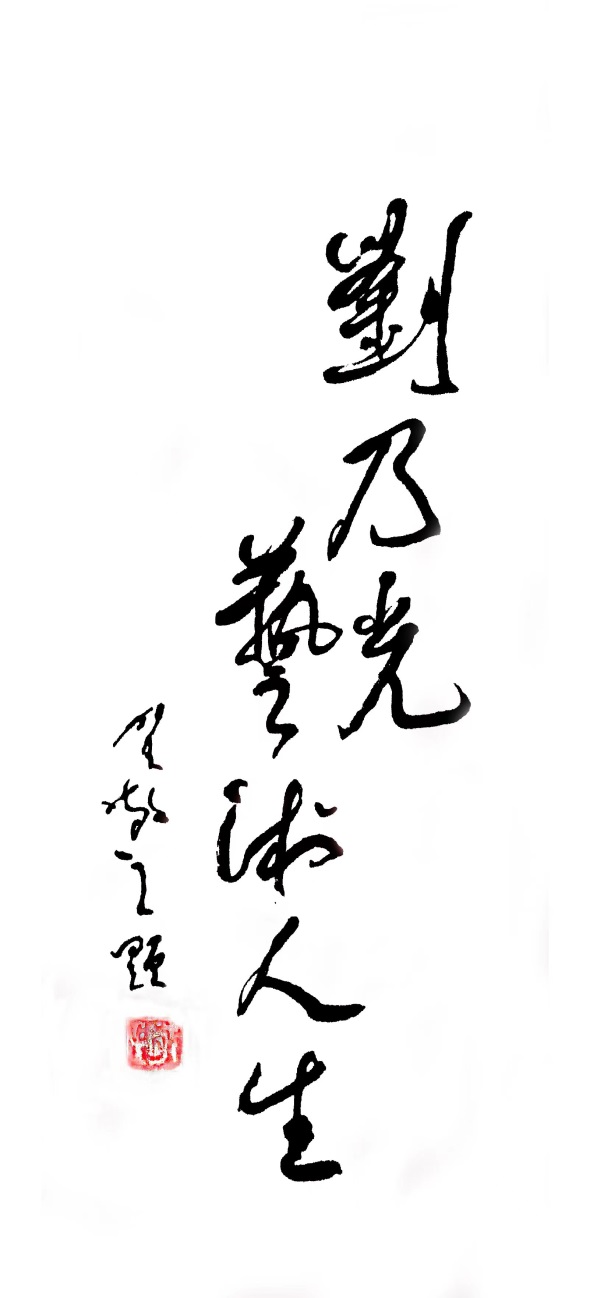 劉乃光
藝術人生
敬之題